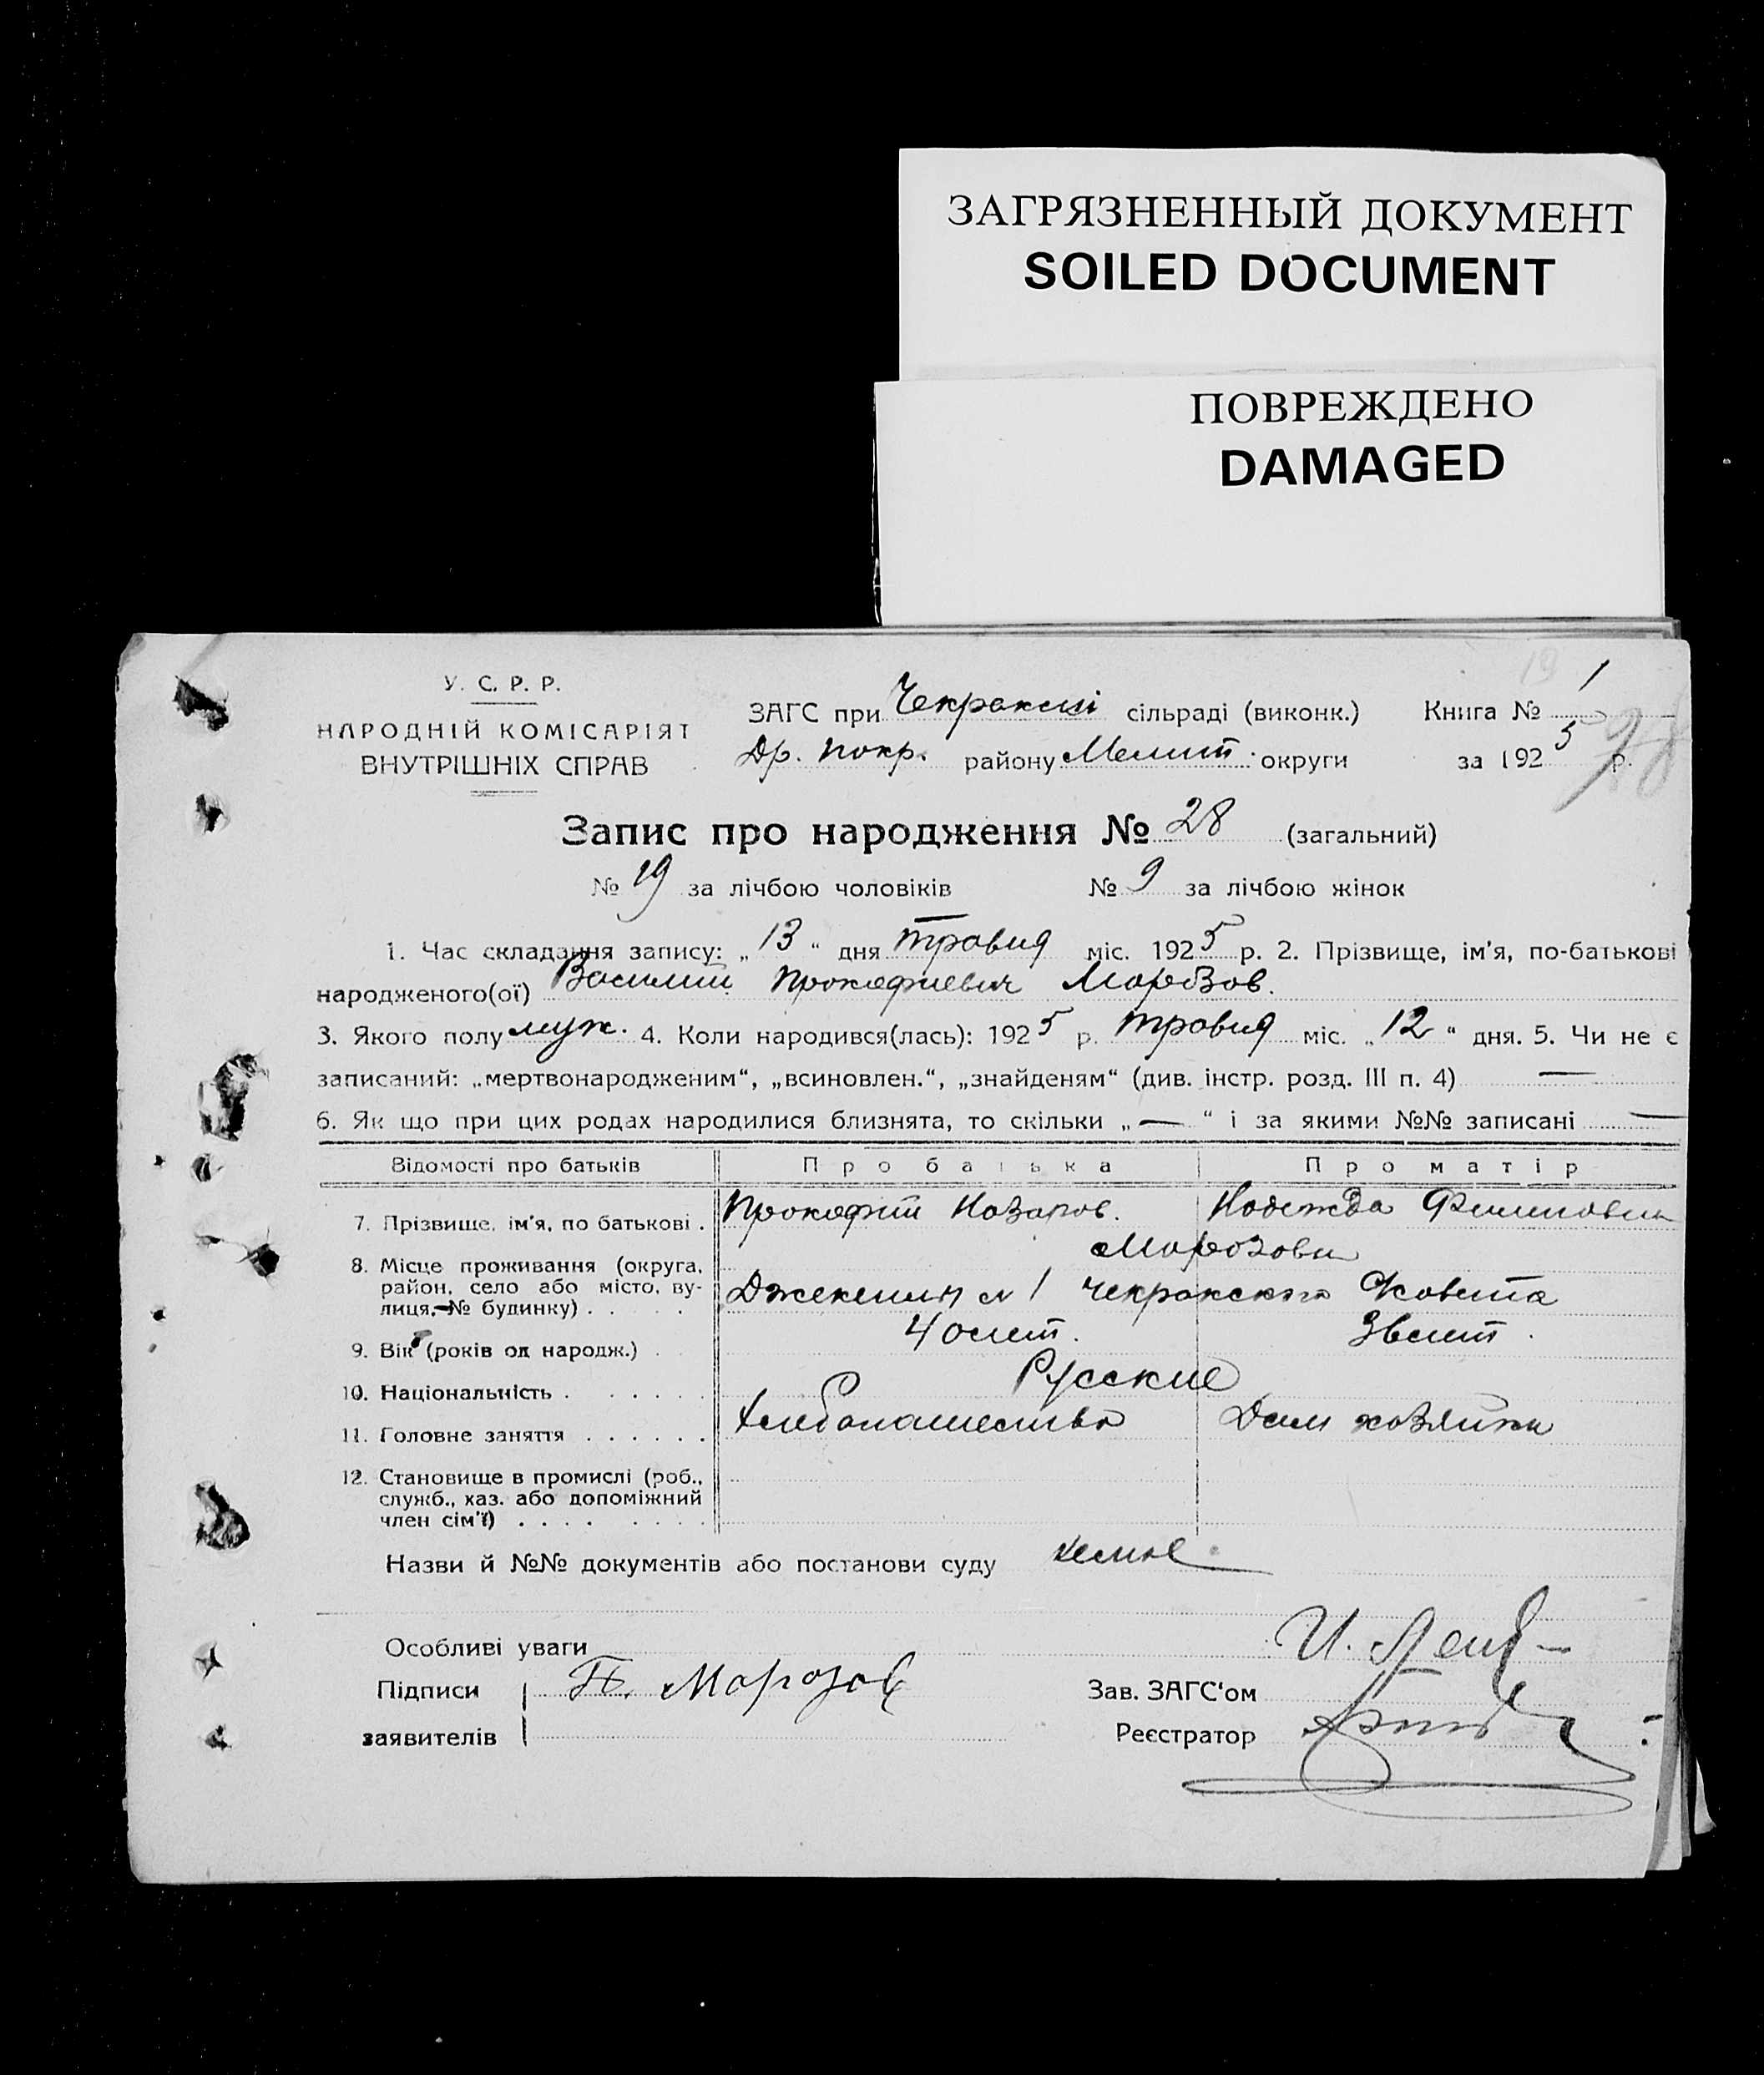 ЗАГРЯЗНЕННЫЙ ДОКУМЕНТ
SOILED DOCUMENT
ПОВРЕЖДЕНО
DAMAGED
У. С. Р. Р.
НАРОДНІЙ КОМІСАРІЯТ
ВНУТРІШНІХ СПРАВ
ЗАГС при Чекракскі сільраді (виконк.) Книга № 1
Др. покр. району Мелит. округи за 1925 р.
Запис про народження № 28 (загальний)
№ 19 за лічбою чоловіків № 9 за лічбою жінок
1. Час складання запису: „13“ дня травня міс. 1925 р. 2. Прізвище, ім'я, по-батькові
народженого(ої) Василий Прокофиевич Морозов.
3. Якого полу муж. 4. Коли народився(лась): 1925 р. травня міс. „12“ дня. 5. Чи не є
записаний: „мертвонародженим“, „всиновлен.“, „знайденям“ (див. інстр. розд. III п. 4) —
6. Як що при цих родах народилися близнята, то скільки „—“ і за якими №№ записані —
Відомості про батьків Про батька Про матір
7. Прізвище, ім'я, по батькові . Прокофий Назаров. Надежда Филиповна
Морозовы
8. Місце проживання (округа,
район, село або місто, ву-
лиця, № будинку) . . . . № 1 Чекракского
9. Вік (років од народж.) . 40 лет. лет.
10. Національність . . . . . . Русские
11. Головне заняття . . . . . . Хлебопашество Дом хозяйка
12. Становище в промислі (роб.,
служб., хаз. або допоміжний
член сім'ї) . . . . . . . .
Назви й №№ документів або постанови суду
Особливі уваги
Підписи П. Морозов Зав. ЗАГС'ом
заявителів Реєстратор